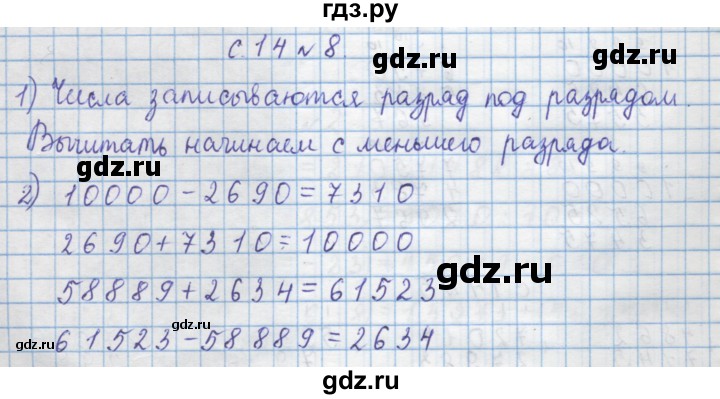 гдз.ру
с. 14 № 8.
gdz.ru
gdz.ru
1) Числа записываются разряд под разрядом.
Вычитать начинаем с меньшего разряда.
gdz.ru
gdz.ru
2) 10000 - 2690 = 7310
2690 + 7310 = 10000
gdz.ru
58889 + 2634 = 61523
gdz.ru
61523 - 58889 = 2634
gdz.ru
gdz.ru